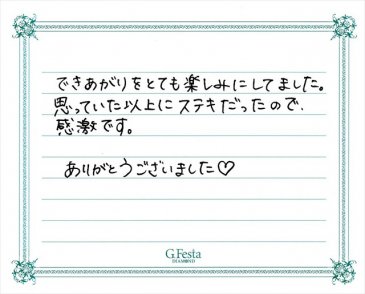 できあがりをとても楽しみにしてました。
思っていた以上にステキだったので、
感激です。
ありがとうございました♡
G.Festa
DIAMOND